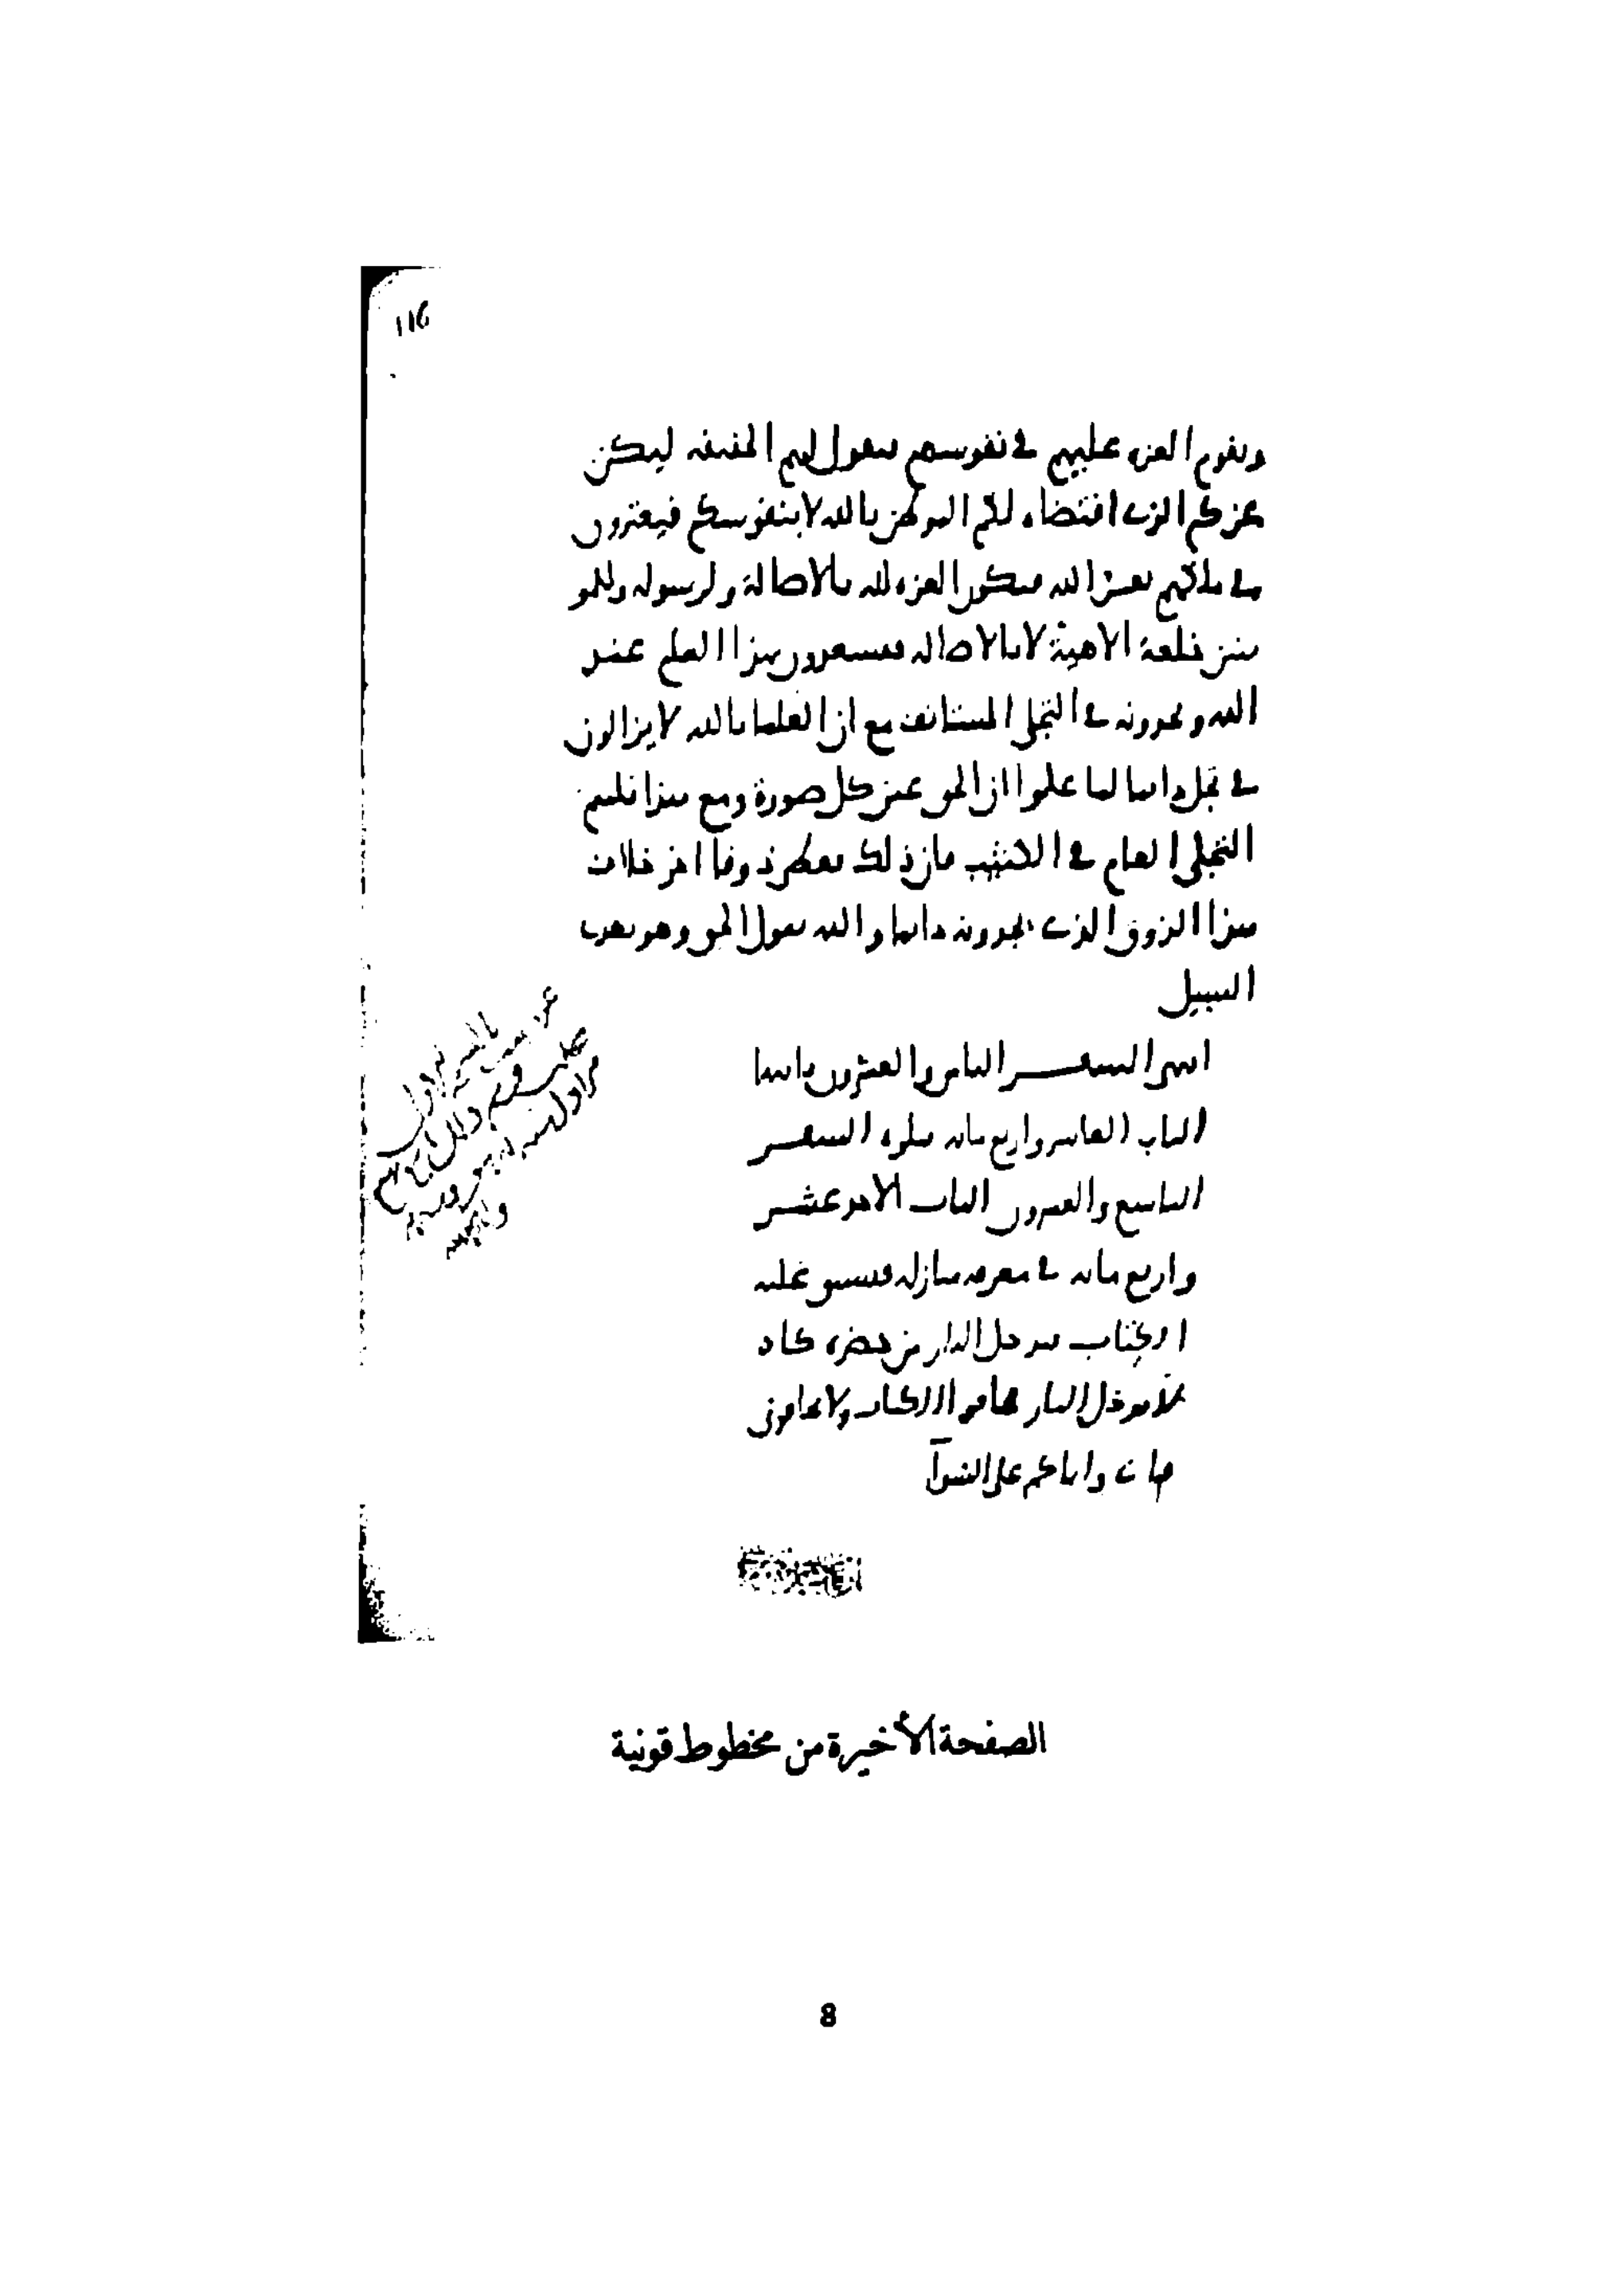 116
وتقوم العزة عليهم في نفوسهم فيقول لهم الحقيقة ليكن
عزكم الذي اقتضاه لكم الموطن بالله لا بنفوسكم فيعتزون
في ملاكهم بعز الله فيكون العزة لله بالاصالة ولرسوله وللمو
منين خلعة الاهية لا بالاصالة فيسعدون بهذا العلم عند
الله ويجدونه في التجلي المستانف مع ان العلما بالله لا يزالون
في تجل دايما لما علموا ان الحق عين كل صورة ومع هذا فلهم
التجلي العام في الكثيب فان ذلك يعطي ذوقا اخر خلاف
هذا الذوق الذي يجدونه دايما والله يقول الحق وهو يهدي
السبيل
انتهى السفر الثامن والعشرون بانتها
الباب العاشر واربع مايه يتلوه السفر
التاسع والعشرون الباب الاحد عشر
واربع مايه في معرفة منازلة فيسبق عليه
الكتاب فيدخل النار من حضرة كاد
لا يدخل النار فخافوا الكتاب ولا تخافوني
فاني واياكم على السوآ
الصفحة الأخيرة من مخطوط قونية
8